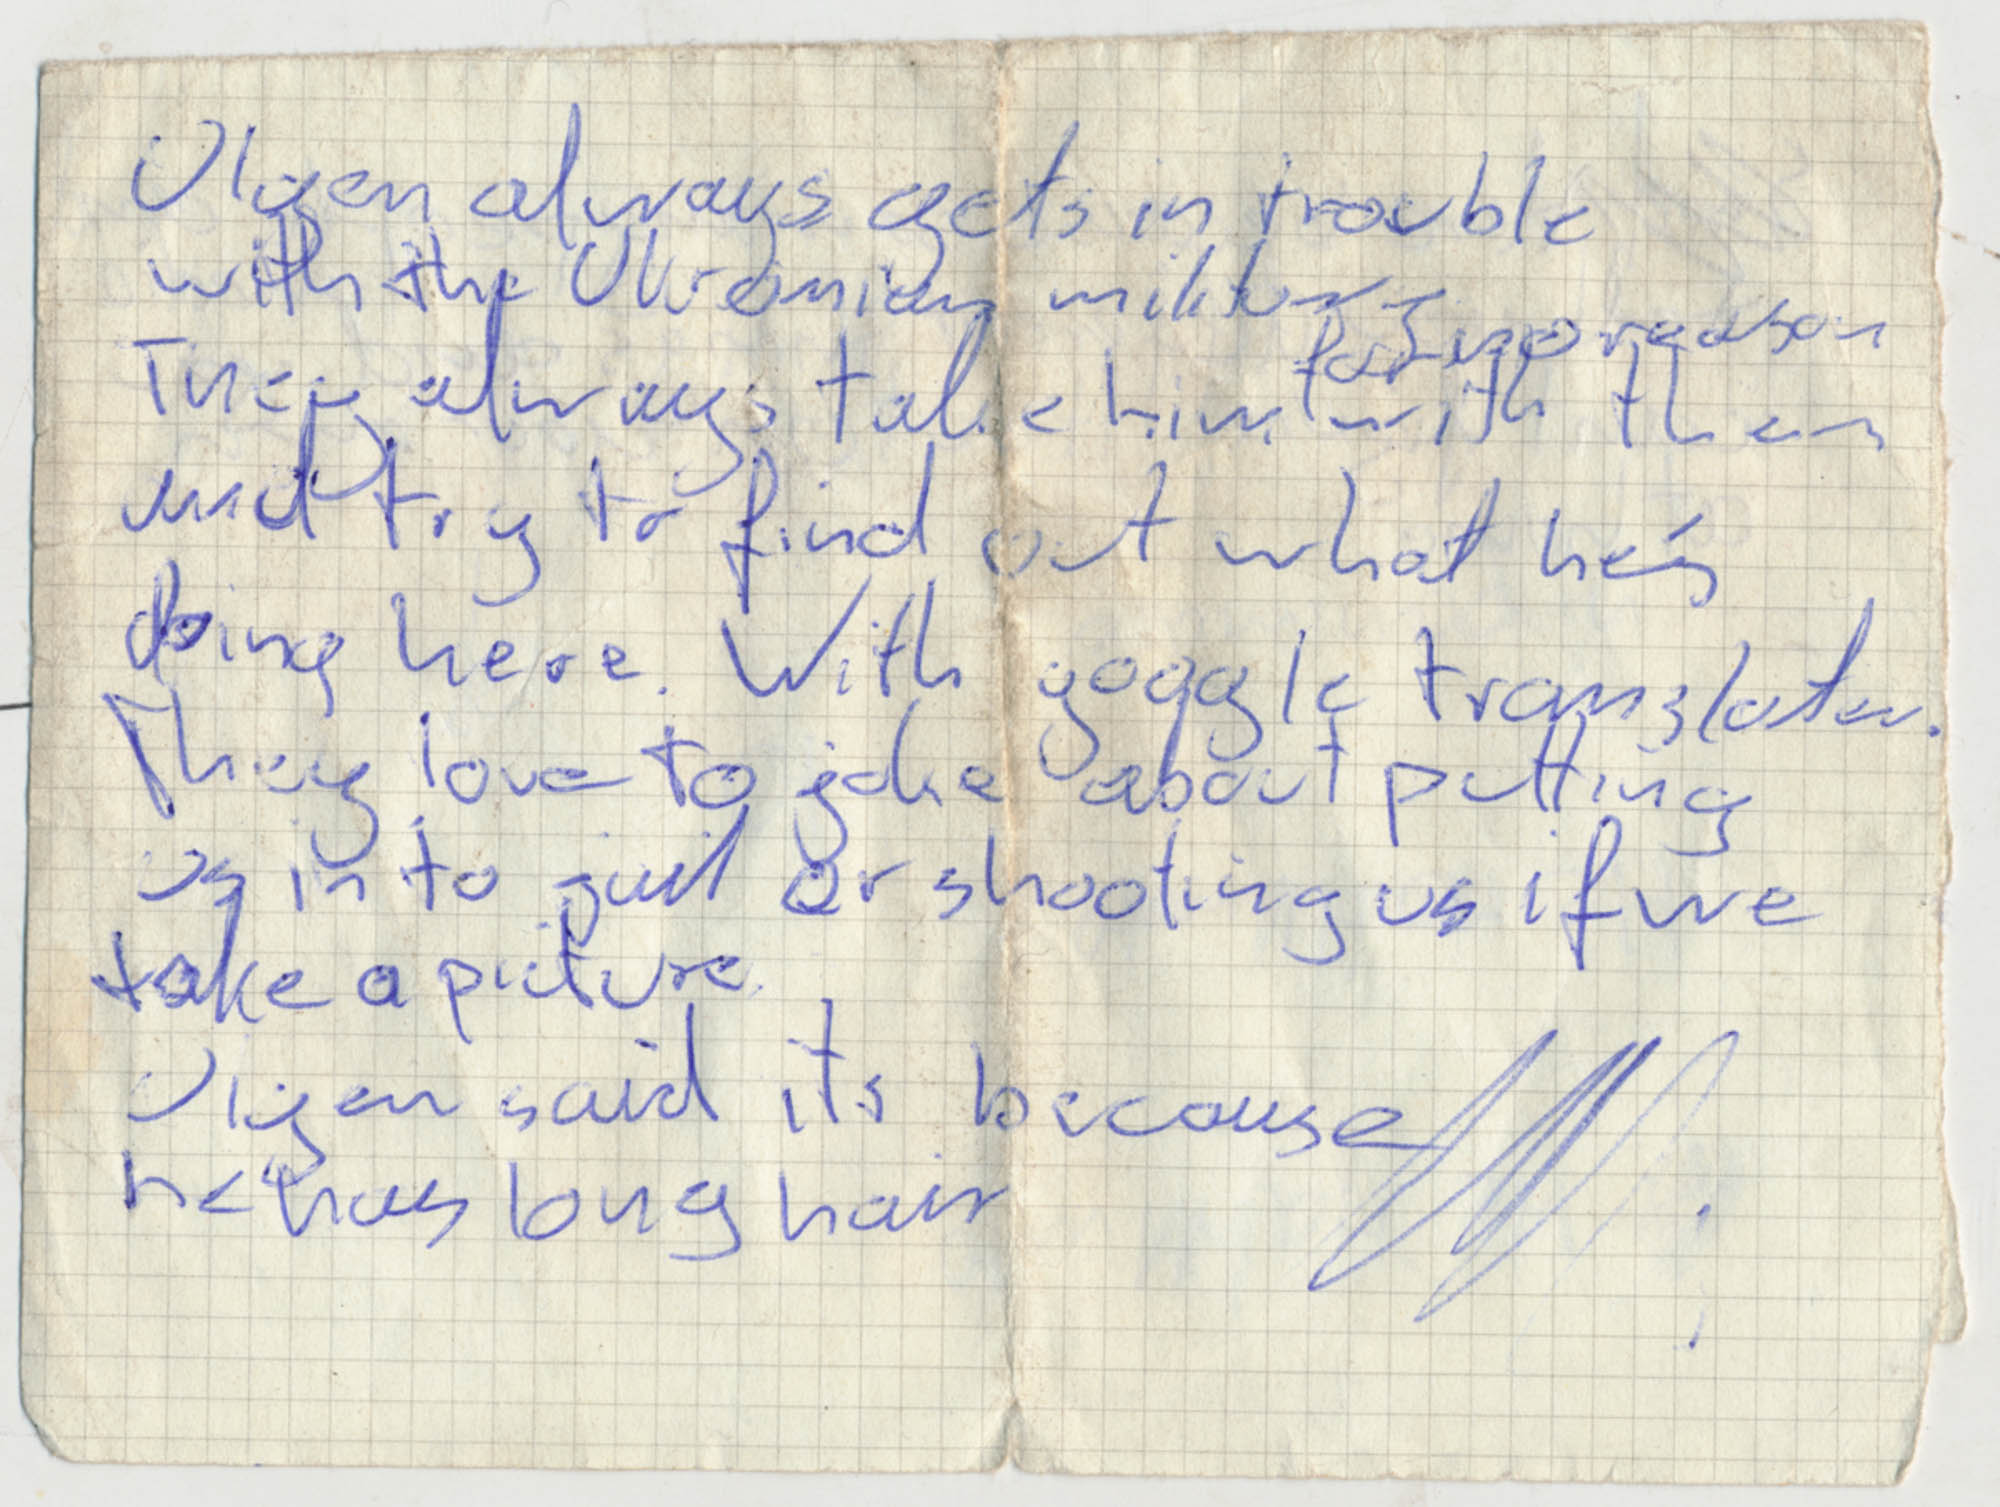 Olgen always gets in trouble
with the Ukranian military
for no reason
They always take him with them
and try to find out what he's
doing here. With goggle translater.
They love to joke about putting
us in to jail or shooting us if we
take a picture.
Olgen said its because
he has long hair